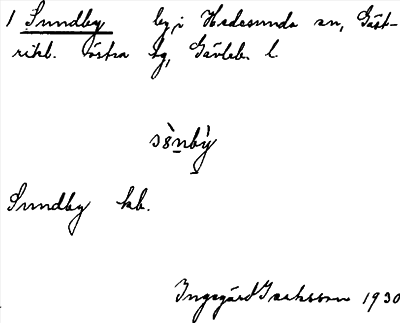 1 Sundby by i Hedesunda sn, Gäst-
rikl. östra tg, Gävleb. l.
sènbỳ
Sundby kb.
Ingegärd Isaksson 1930